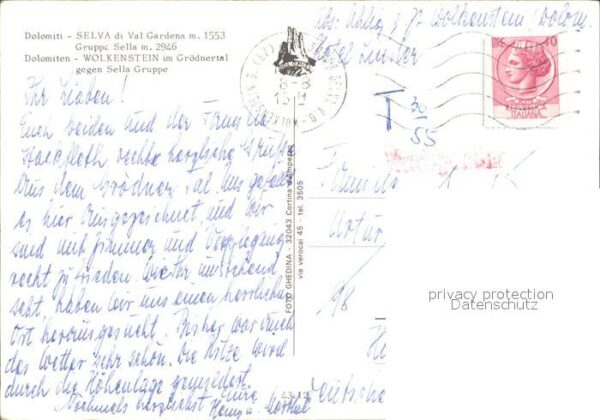 Dolomiti - SELVA di Val Gardena m. 1553
Gruppo Sella m. 2946
Dolomiten - WOLKENSTEIN im Grödnertal
gegen Sella Gruppe
Ihr Lieben!
Euch beiden und der Familie
Hackfleth recht herzliche Grüße
aus dem Grödner Tal. Uns gefällt
es hier ausgezeichnet und wir
sind mit Zimmer und Verpflegung
recht zufrieden. Wie Ihr umstehend
seht haben wir uns einen herrlichen
Ort herausgesucht. Bisher war auch
das Wetter sehr schön. Die Hitze wird
durch die Höhenlage gemildert.
Nochmals herzlichst Eure
Hans u.
FOTO GHEDINA - 32043 Cortina d'Ampezzo
via verocai 45 - tel. 3505
Wolkenstein Dolom.
Hotel
T 30/55
40
ITALIANA
Familie
Artur
198
privacy protection
Datenschutz